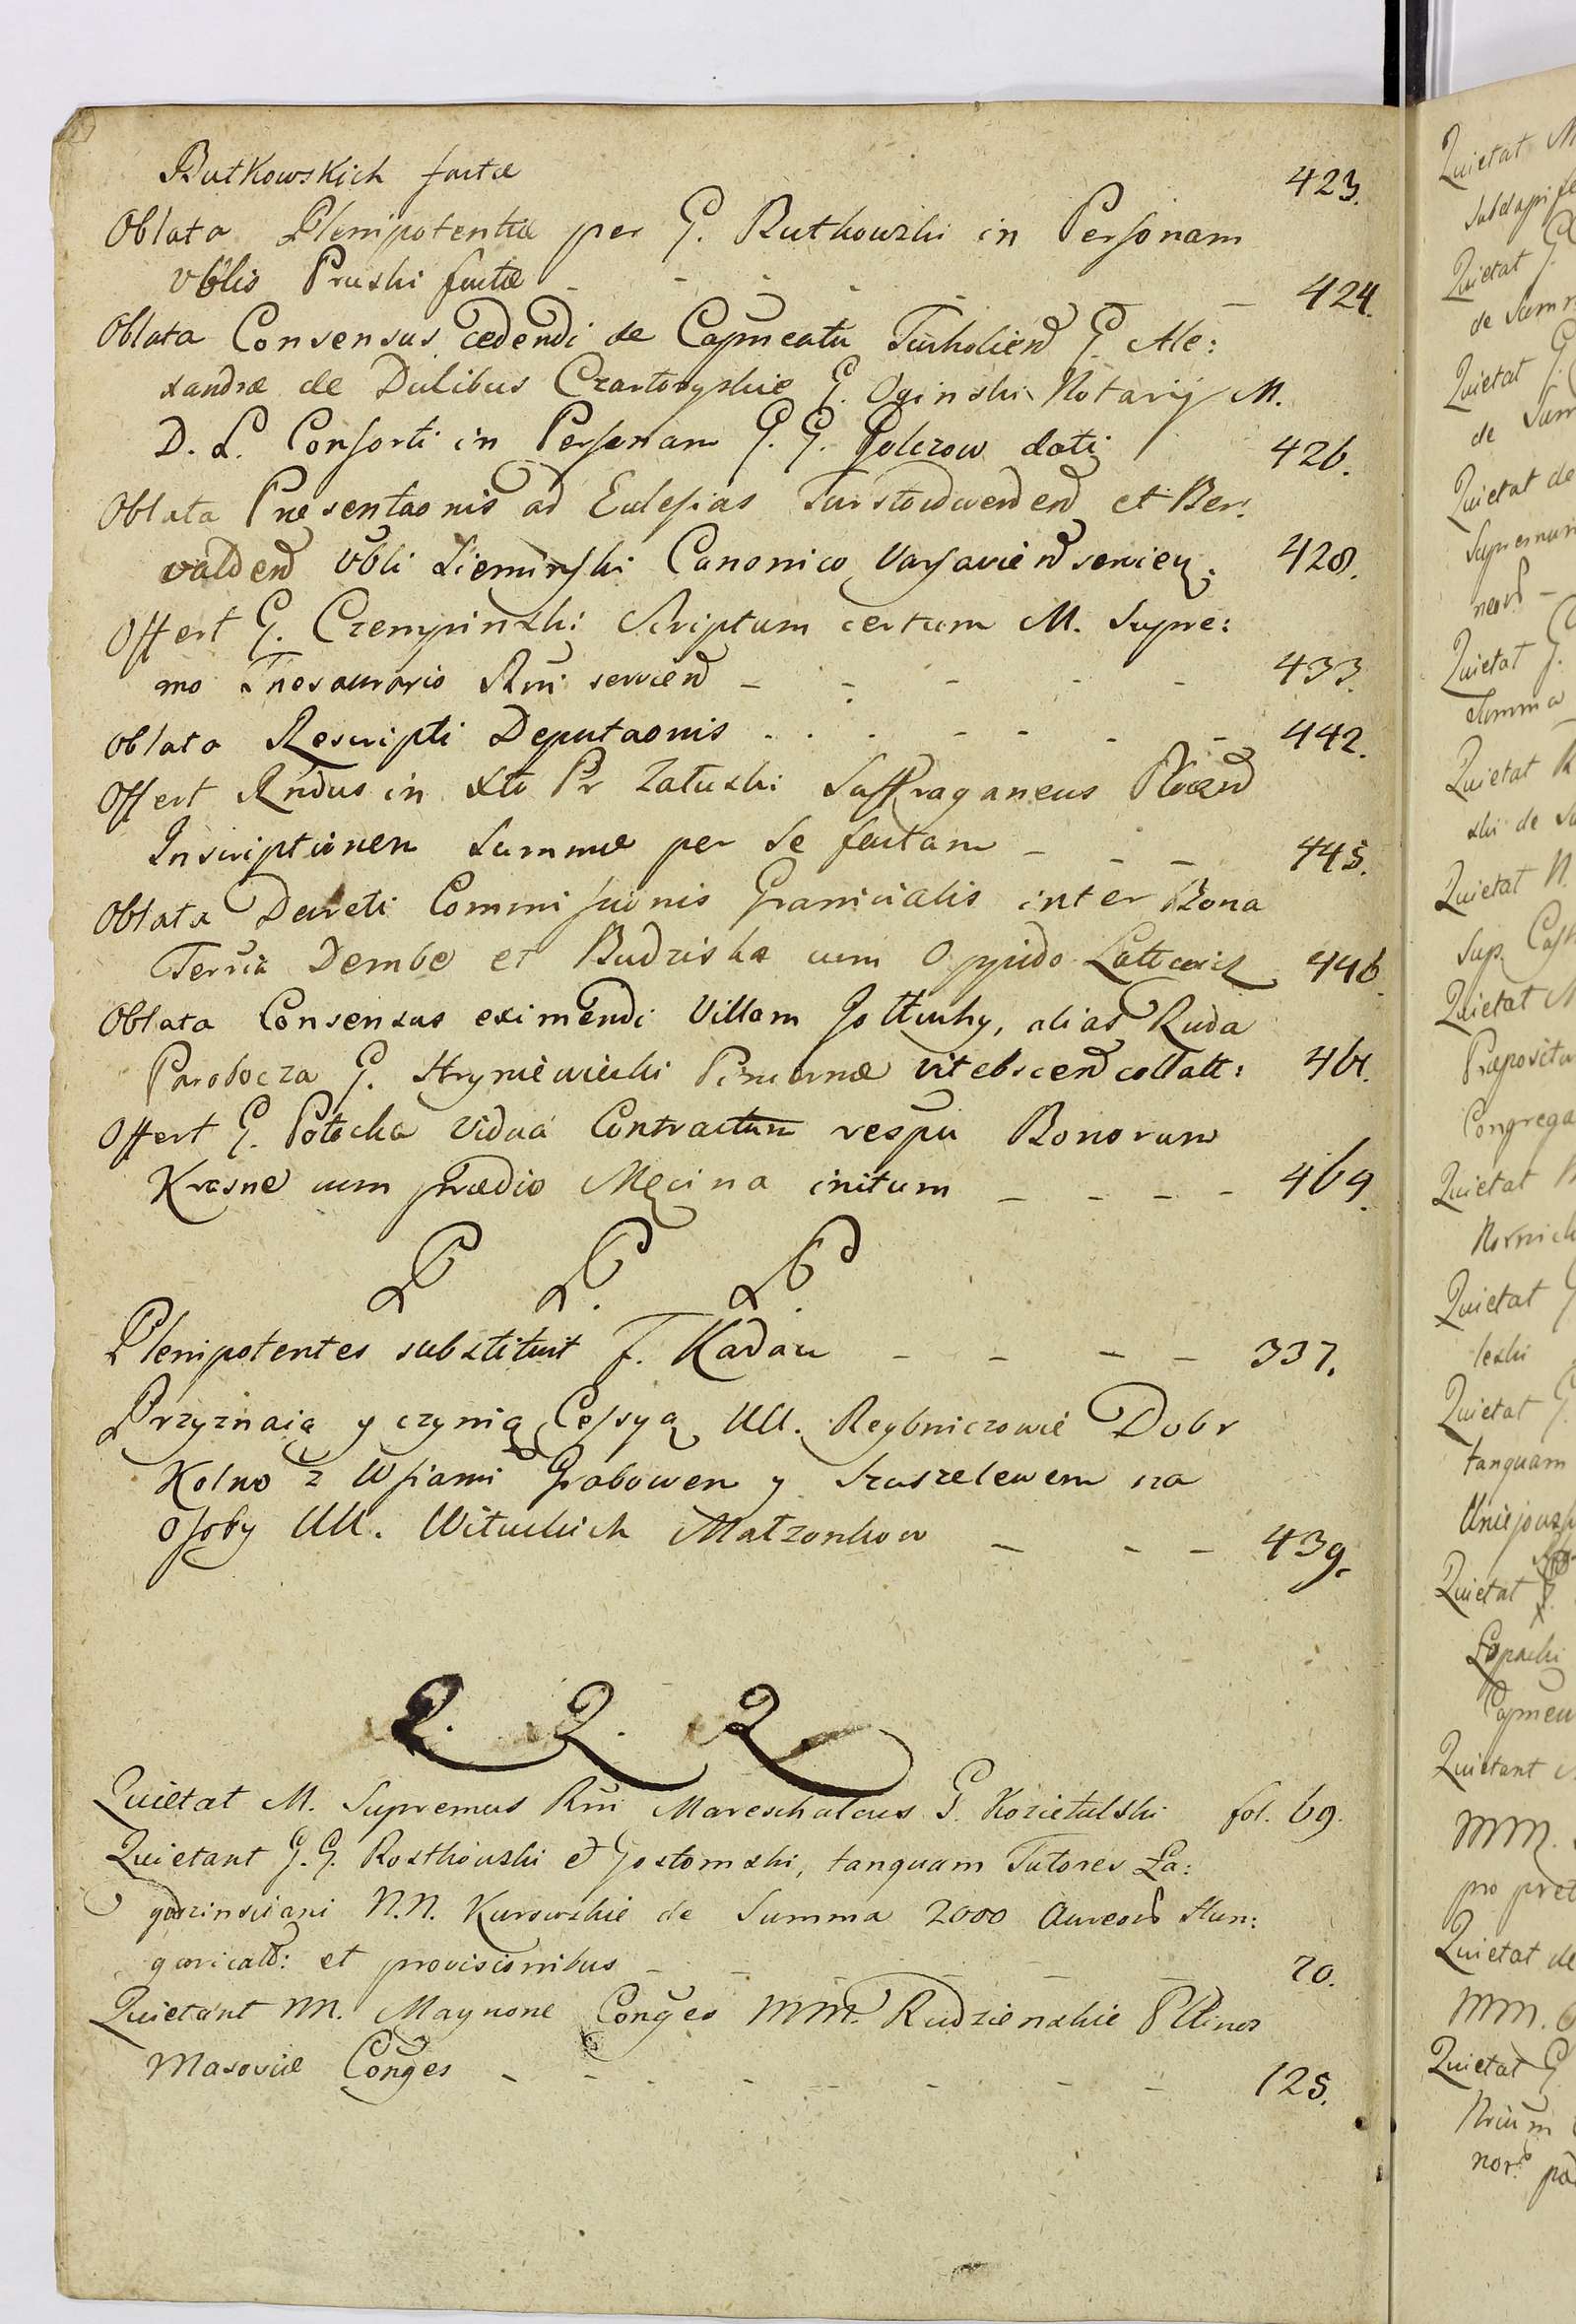 Butkowskich factæ 423.
Oblata Plenipotentiæ per G. Rutkowski in Personam
Vblis Pruski factæ - - - - - - 424.
Oblata Consensus cedendi de Capneatu Turholiens G. Ale:
xandræ de Ducibus Czartoryskie G. Oginski Notarij M.
D. L. Consorti in Personam G. G. Golczow dati 426.
Oblata Præsentaonis ad Eclesias Turstowdwendens et Ber:
valdens Vbli Siemiński Canonico Varsaviens servien: 428.
Offert G. Czempinski Scriptum certum M. Supre:
mo Thesaurario Rni serviens - - - - - 433.
Oblata Rescripti Deputaonis . . . - - - - 442.
Offert Rndus in Xto Pr Załuski Suffraganeus Plocens
Inscriptionem Summæ per Se factam - - - 445.
Oblata Decreti Commissionis Granicialis inter Bona
Terria Dembe et Budziska cum Oppido Łatowicz 446
Oblata Consensus eximendi Villam Jottuchy, alias Ruda
Parobocza G. Hryniewiecki Pincernæ Vitebscens collatt: 461.
Offert G. Potocka Vidua Contractum respu Bonorum
Krasne cum prædio Męcina initum - - - - 469.
P P. P.
Plenipotentes substituit F. Kadau - - - - 337.
Przyznaią y czynią Cessyą UU. Reybniczowie Dobr
Kolno z Wsiami Grabowem y Szaszelewem na
Osoby UU. Wituckich Małzonkow - - - 439.
Q. Q. Q
Quietat M. Supremus Rni Mareschalcus G. Kozietulski fol. 69.
Quietant G. G. Rostkowski et Gostomski, tanquam Tutores La:
godzinsciani N.N. Kurowskie de Summa 2000 Aureor Hun:
garicalt: et provisionibus - - - - - 70.
Quietant M. Maynone Conges MM. Rudzienskie Pllinos
Masoviæ Conges - - - - - - - - 125.
Quietat M
Quietat G.
de Sum
Quietat G.
de Sum
Quietat de
Quietat G.
Summa
Quietat R
ski de Su
Quietat N.
Quietat M
Præposit
Congrega
Quietat
Quietat G
leski
Quietat G.
tanquam
Quietat
Quietant
MM.
pro pret
Quietat de
MM.
Quietat G